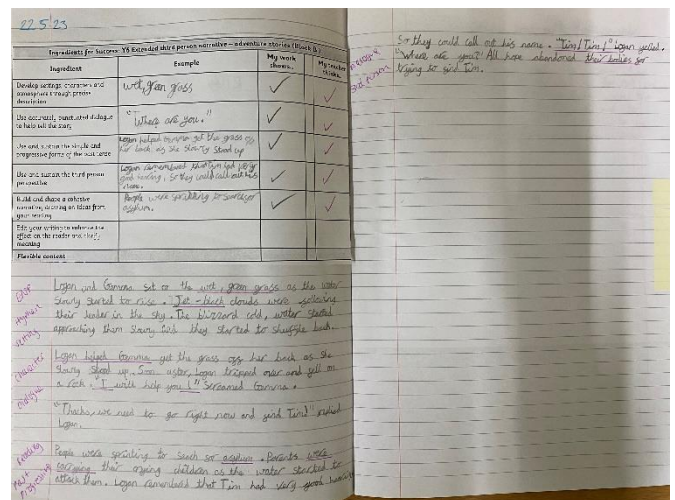 22.5.23
Ingredients for Success: Y6 Extended third person narrative – adventure stories (Block B)
Ingredient
Example
My work shows...
My teacher thinks...
Develop settings, characters and atmosphere through precise description
wet, green grass
Use accurately punctuated dialogue to help tell the story
"Where are you."
Use and sustain the simple and progressive forms of the past tense
Logan helped Gamma get the grass off her back as she slowly stood up
Use and sustain the third person perspective
Logan remembered that Tim had very good hearing, so they could call out his name.
Build and shape a cohesive narrative, drawing on ideas from your reading
People were sprinting to search for asylum.
Edit your writing to enhance the effect on the reader and clarify meaning
Flexible content
Logan and Gamma sat on the wet, green grass as the water
slowly started to rise. Jet-black clouds were following
their leader in the sky. The blizzard cold, water started
approaching them slowly and they started to shuffle back.
Logan helped Gamma get the grass off her back as she
slowly stood up. Soon after, Logan tripped over and fell on
a rock. "I will help you!" screamed Gamma.
"Thanks, we need to go right now and find Tim!" replied
Logan.
People were sprinting to search for asylum. Parents were
carrying their crying children as the water started to
attack them. Logan remembered that Tim had very good hearing
So they could call out his name. "Tim! Tim!" Logan yelled.
"Where are you?" All hope abandoned their bodies for
trying to find Tim.